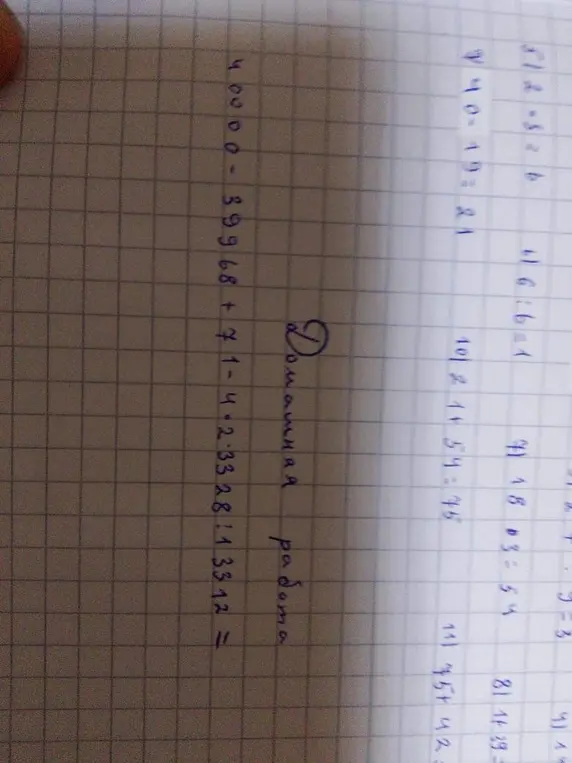 5) 2 · 3 = 6 6) 6 : 6 = 1 7) 18 · 3 = 54 8) 1+39=
40 - 19 = 21 10) 21 + 54 = 75 11) 75 + 42 =
Домашная работа
40000 - 39968 + 71 - 4 · 2 · 3328 : 13312 =